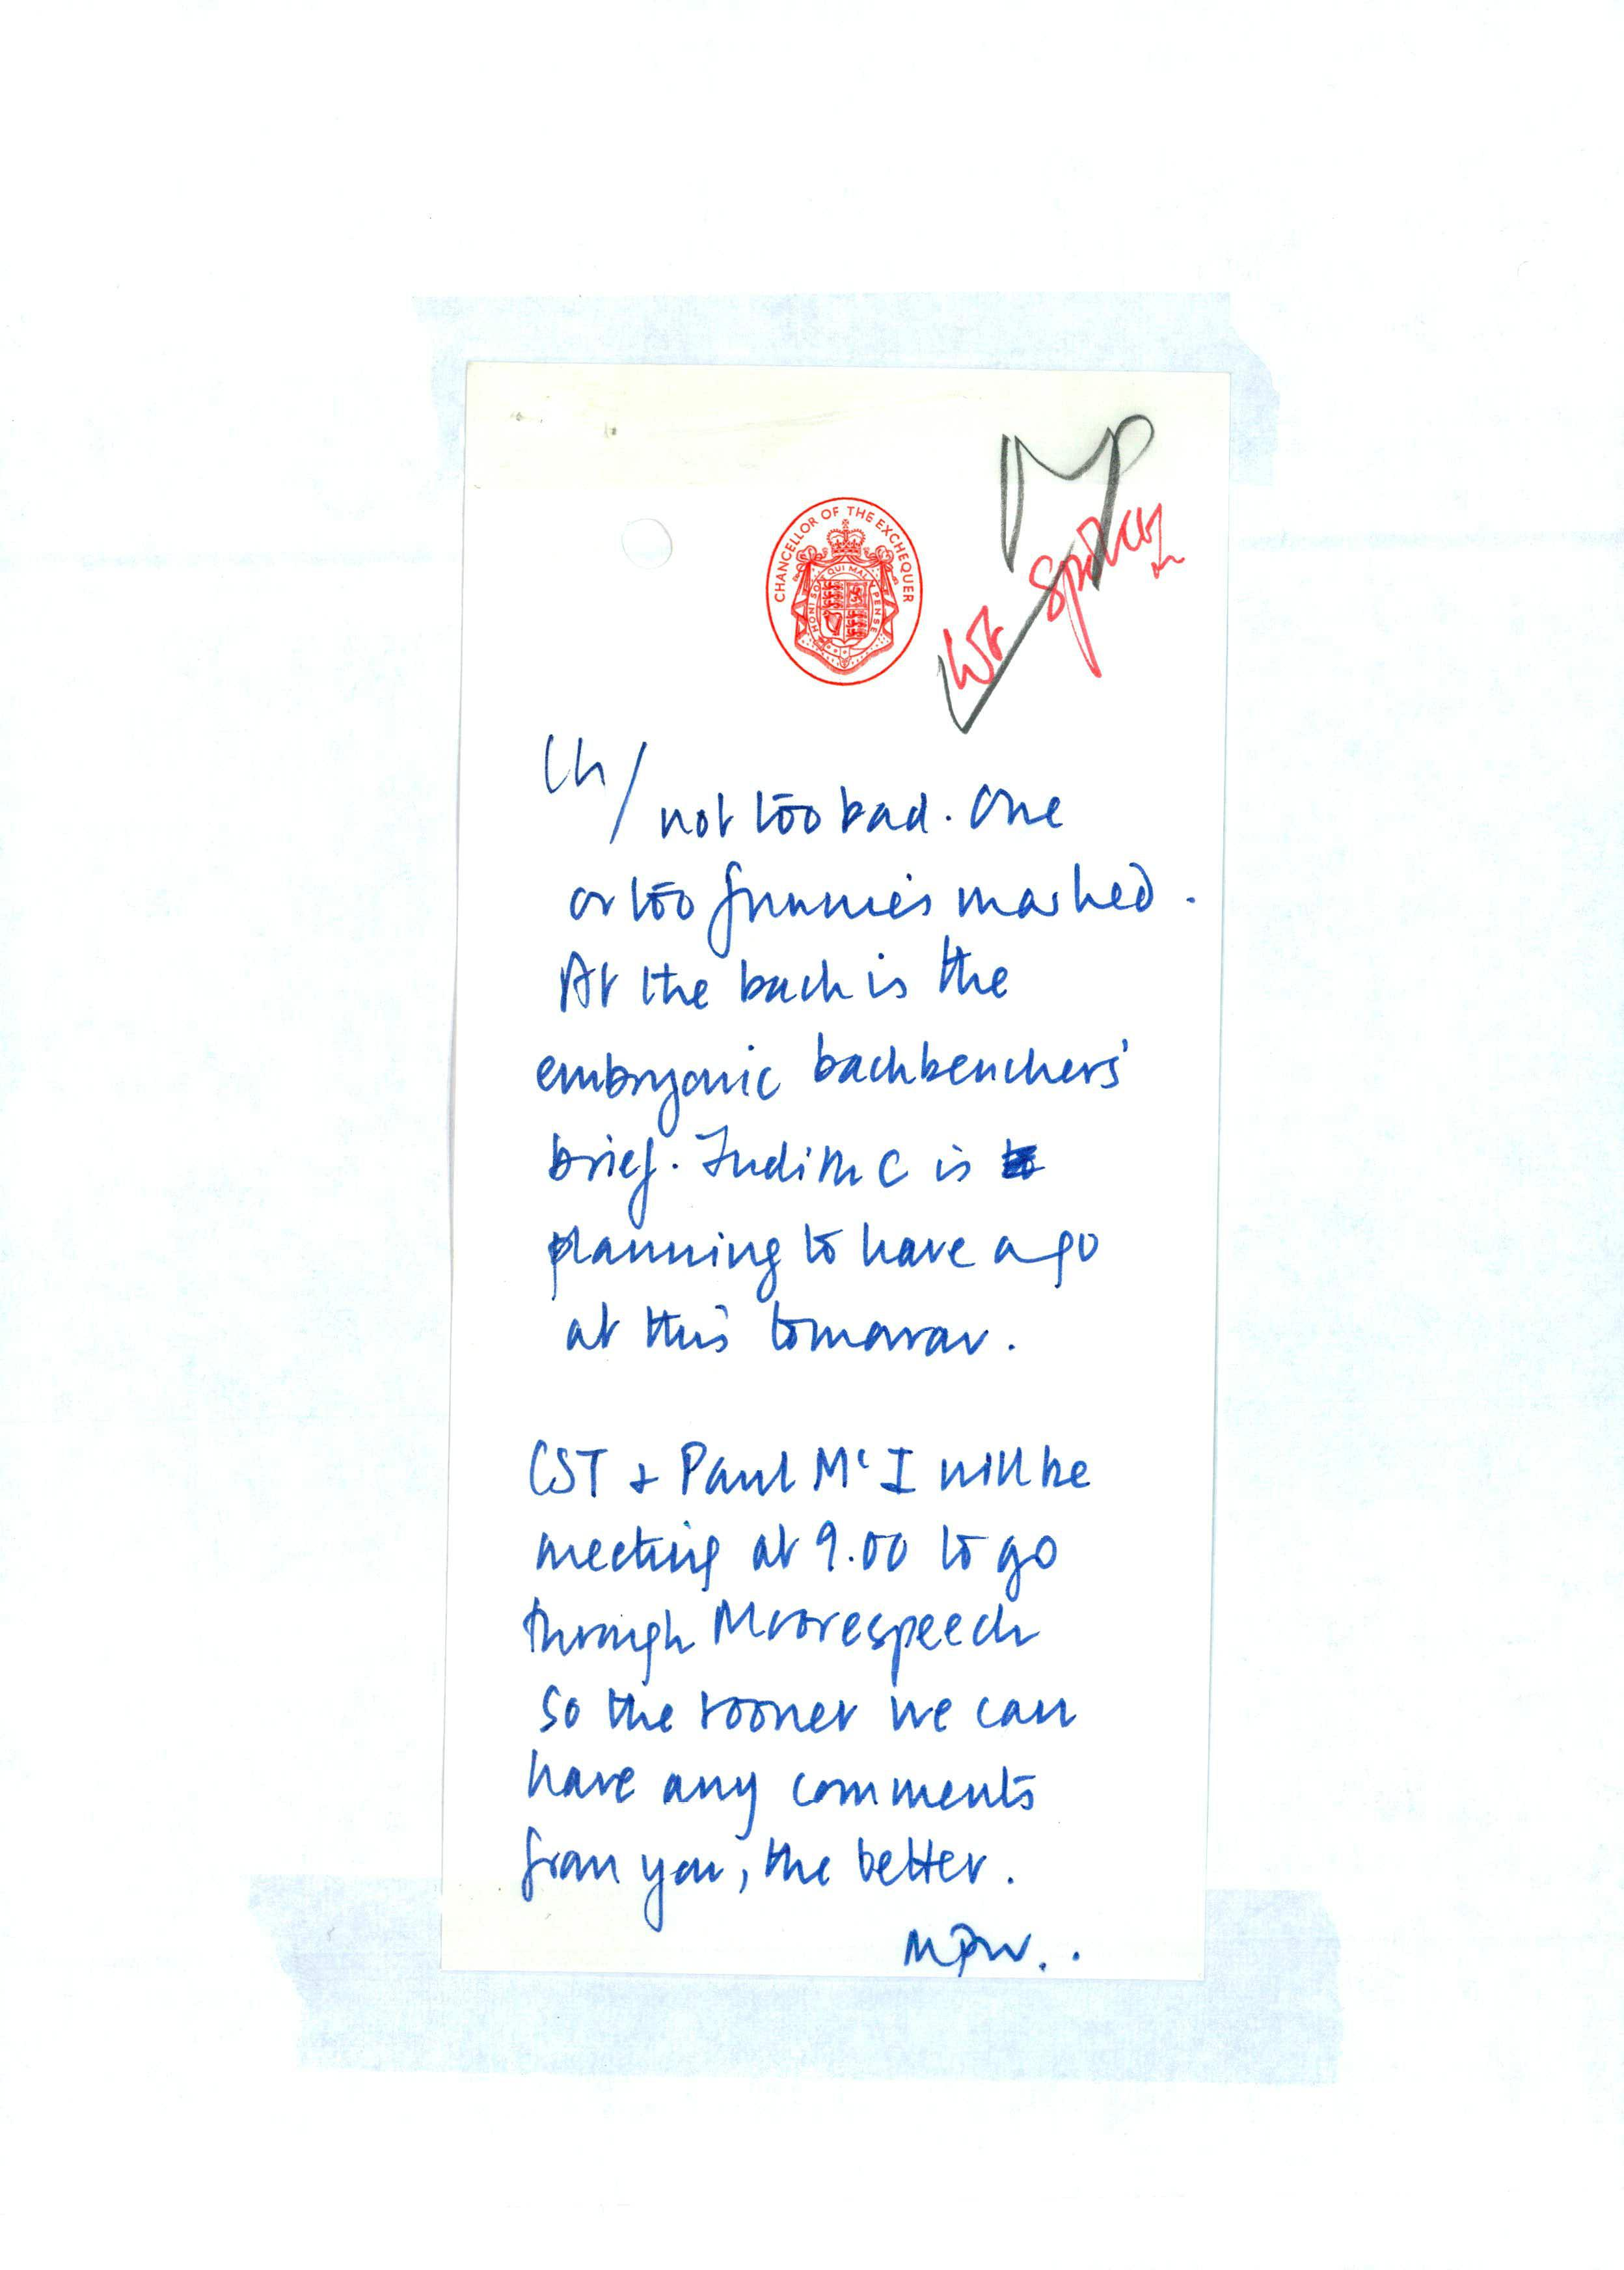 CHANCELLOR OF THE EXCHEQUER
HONI SOIT QUI MAL Y PENSE
We spoke
Ch/
not too bad. One
or too funnies marked.
At the back is the
embryonic backbenchers'
brief. Judith C is
planning to have a go
at this tomorrow.
CST + Paul McI will be
meeting at 9.00 to go
through Moore speech
so the sooner we can
have any comments
from you, the better.
MPW.